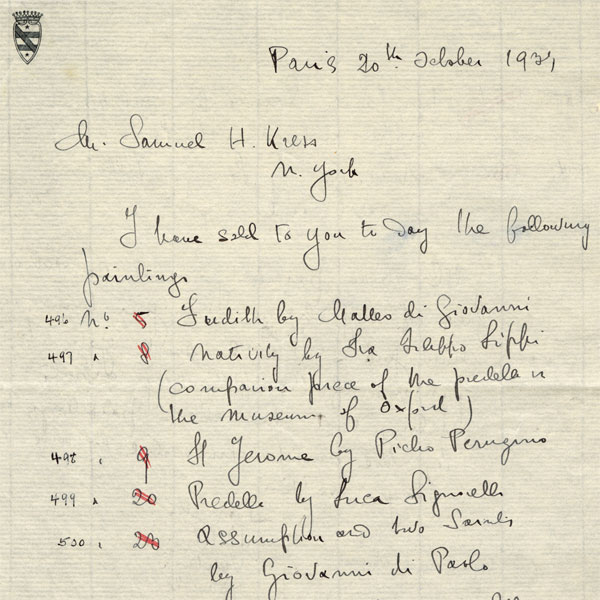 Paris 20th October 1934
Mr. Samuel H. Kress
N. York
I have sold to you to day the following
paintings
496 No. 5 Judith by Matteo di Giovanni
497 " 8 Nativity by Fra Filippo Lippi
(companion piece of the predella in
the museum of Oxford)
498 " 9 St Jerome by Pietro Perugino
499 " 20 Predella by Luca Signorelli
500 " Assumption and two Saints
by Giovanni di Paolo